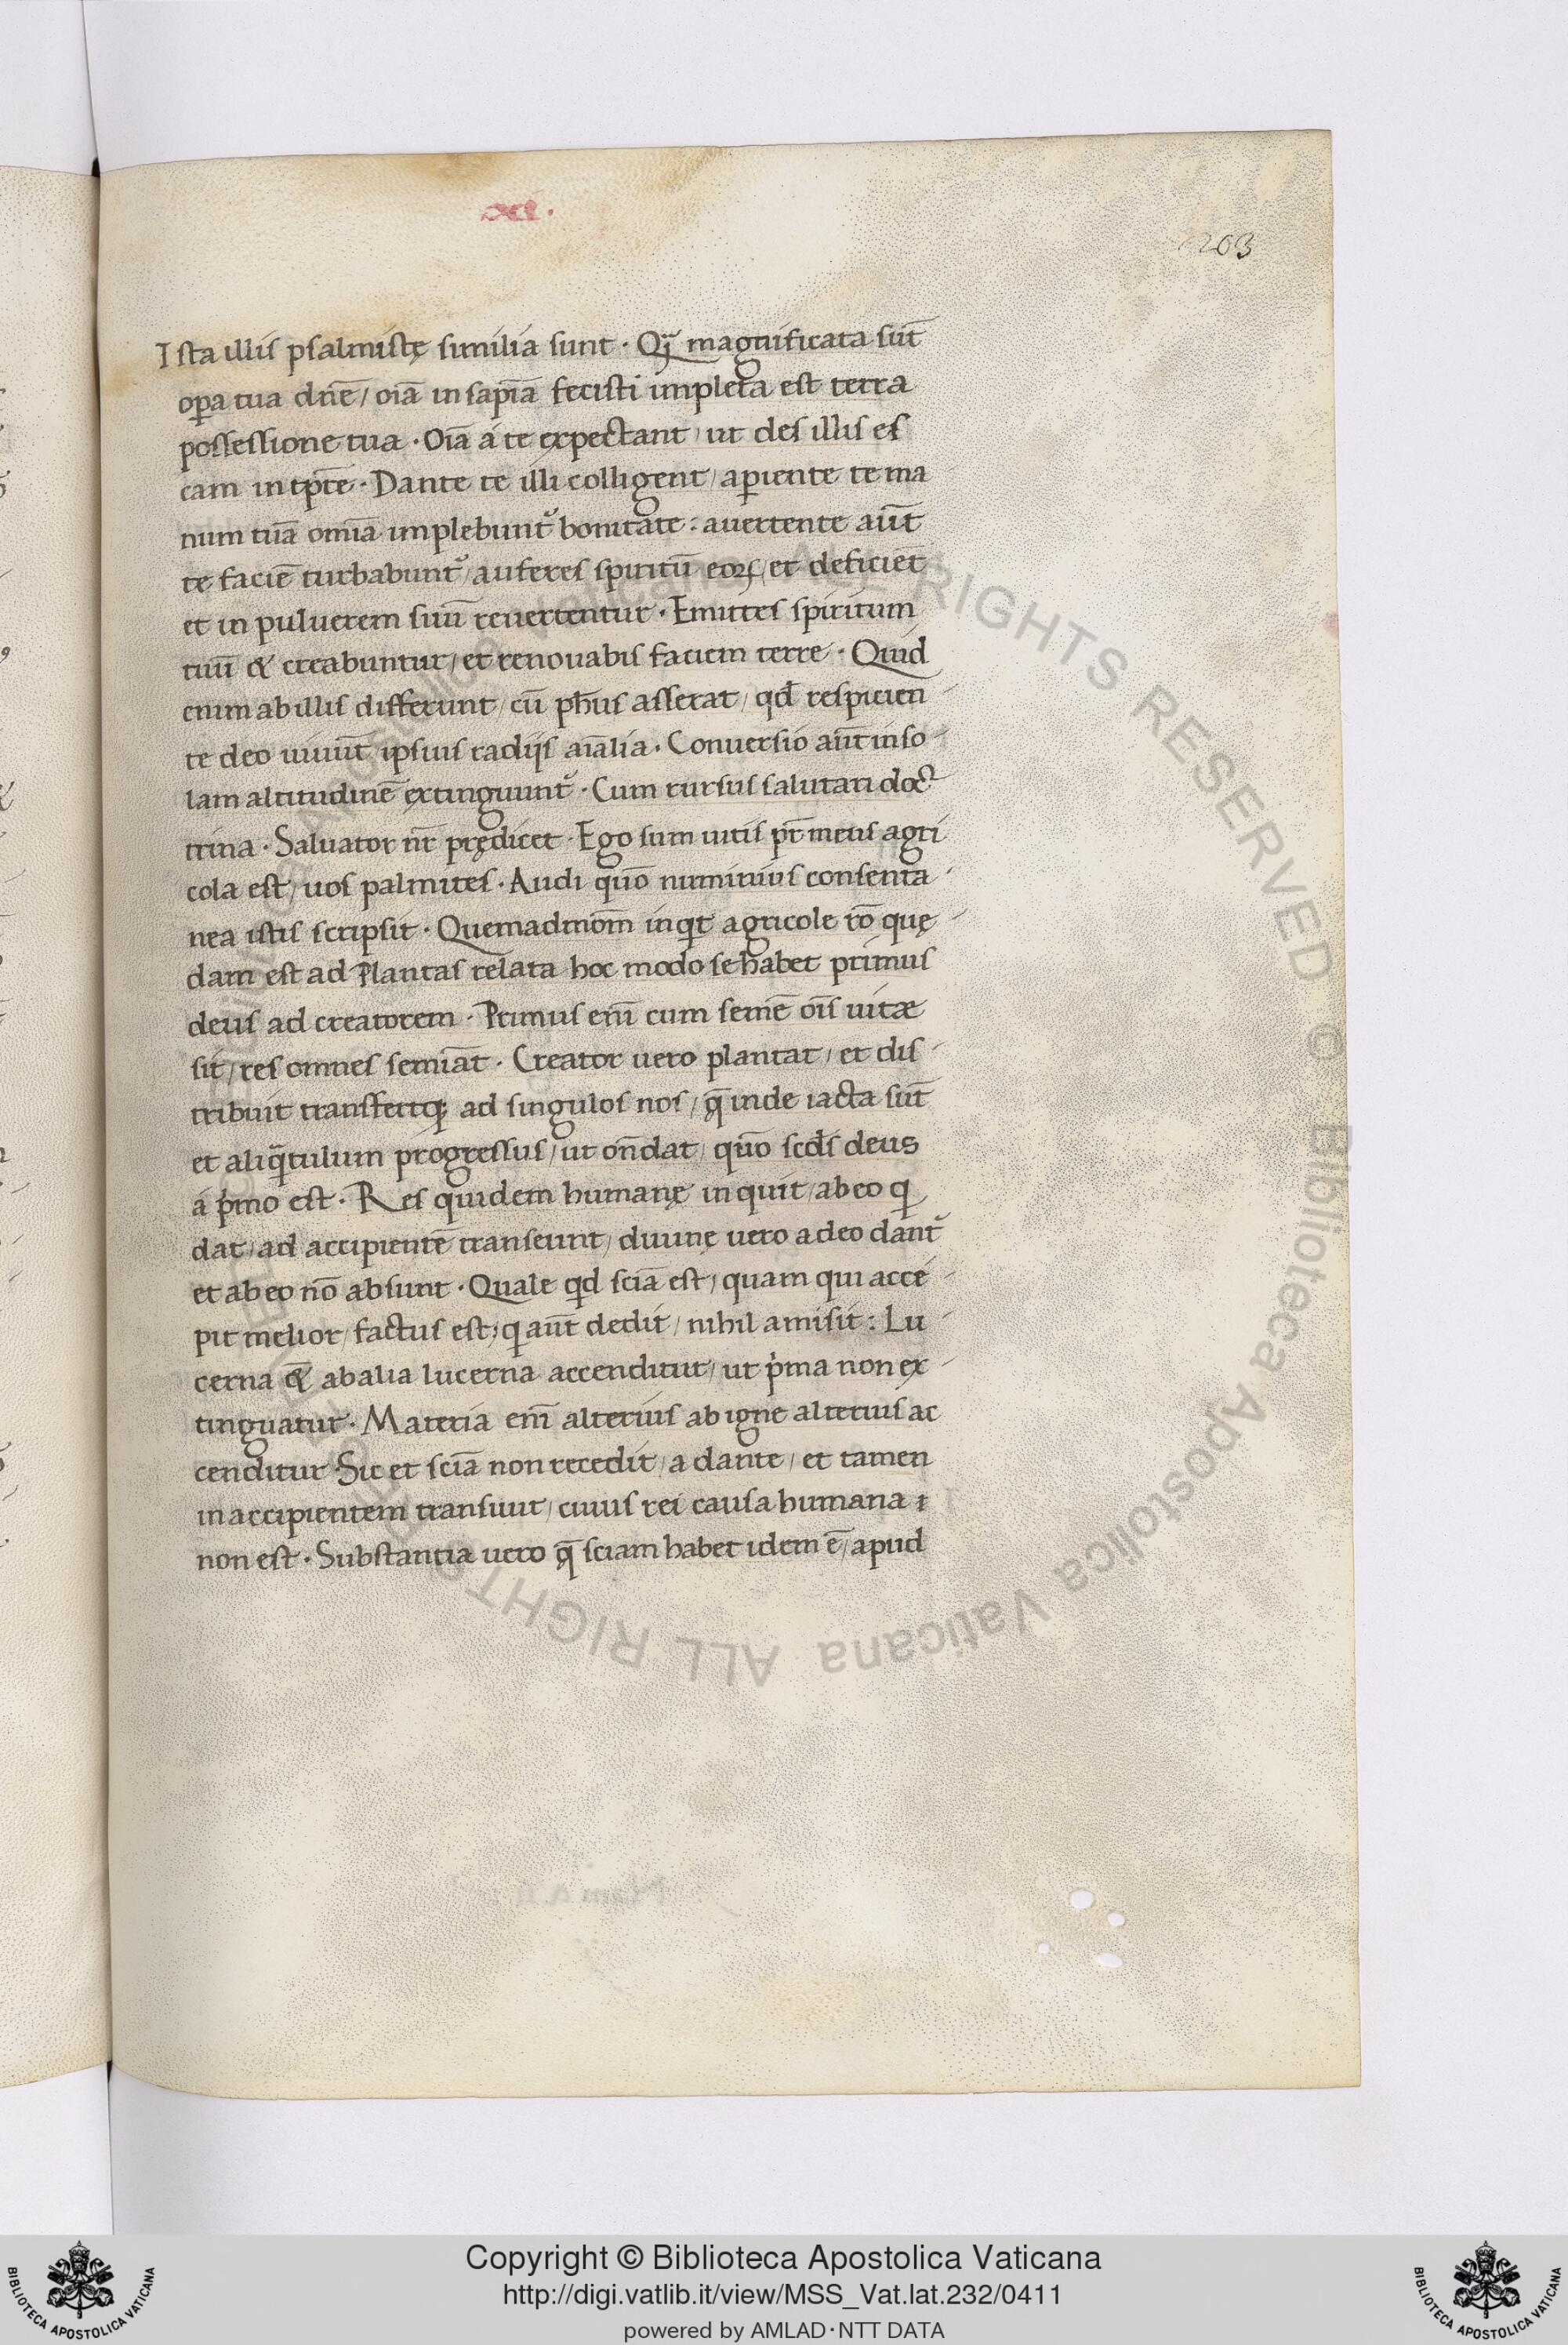 xi.
203
Ista illis psalmistę similia sunt · Qͣ magnificata sūt
oꝑa tua dn̄e / oīa in sapīa fecisti impleta est terra
possessione tua · Oīa á te expectant / ut des illis es
cam in tp̄re · Dante te illi colligent / aꝑiente te ma
num tuā omīa implebunt᷑ bonitate : auertente aūt
te faciē turbabunt᷑ / auferes spiritū eoꝝ / et deficiēt
et in puluerem suū reuertentur · Emittes spiritum
tuū & creabuntur / et renouabis faciem terre · Quid
enim ab illis differunt / cū ph̄us asserat / qđ respicien
te deo uiuūt ipsius radijs aīalia · Conuersio aūt in so
lam altitudinē extinguunt᷑ · Cum rursus salutari doc
trina · Saluator nr̄ prędicet · Ego sum uitis pr̄ meus agri
cola est / uos palmites · Audi quō numinius consenta
nea istis scripsit · Quemadmōm inqͥt agricole rō quę
dam est ad Plantas relata hoc modo se habet primus
deus ad creatorem · Primus enī cum semē oīs uitæ
sit / res omnes semīat · Creator uero plantat / et dis
tribuit transfertqꝫ ad singulos nos / q̄ inde iacta sūt
et aliqͣtulum progressus / ut on̄dat / quō scd̄s deus
á pͥmo est · Res quidem humanę inquit / ab eo qͥ
dat / ad accipientē transeunt / diuinę uero a deo dant᷑
et ab eo nō absunt · Quale qͥd scīa est / quam qui acce
pit melior / factus est / qͥ aūt dedit / nihil amisit : Lu
cerna &̄ ab alia lucerna accenditur / ut pͥma non ex
tinguatur · Materia enī alterius ab igne alterius ac
cenditur · Sic et scīa non recedit / a dante / et tamen
in accipientem transiuit / cuius rei causa humana
non est · Substantia uero q̄ sciam habet idem ē / apud
Copyright © Biblioteca Apostolica Vaticana
http://digi.vatlib.it/view/MSS_Vat.lat.232/0411
powered by AMLAD·NTT DATA